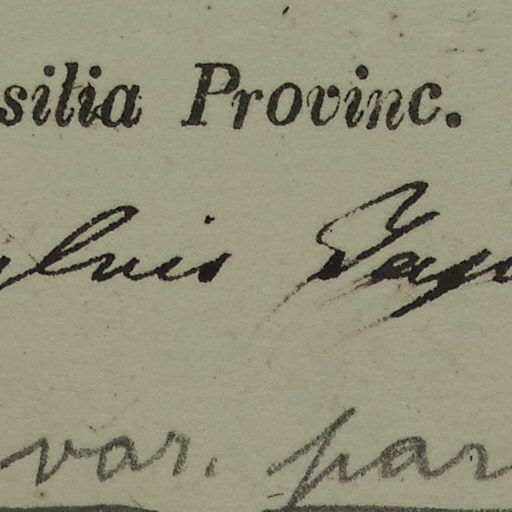 silia Provinc.
ylvis Tap
var. par